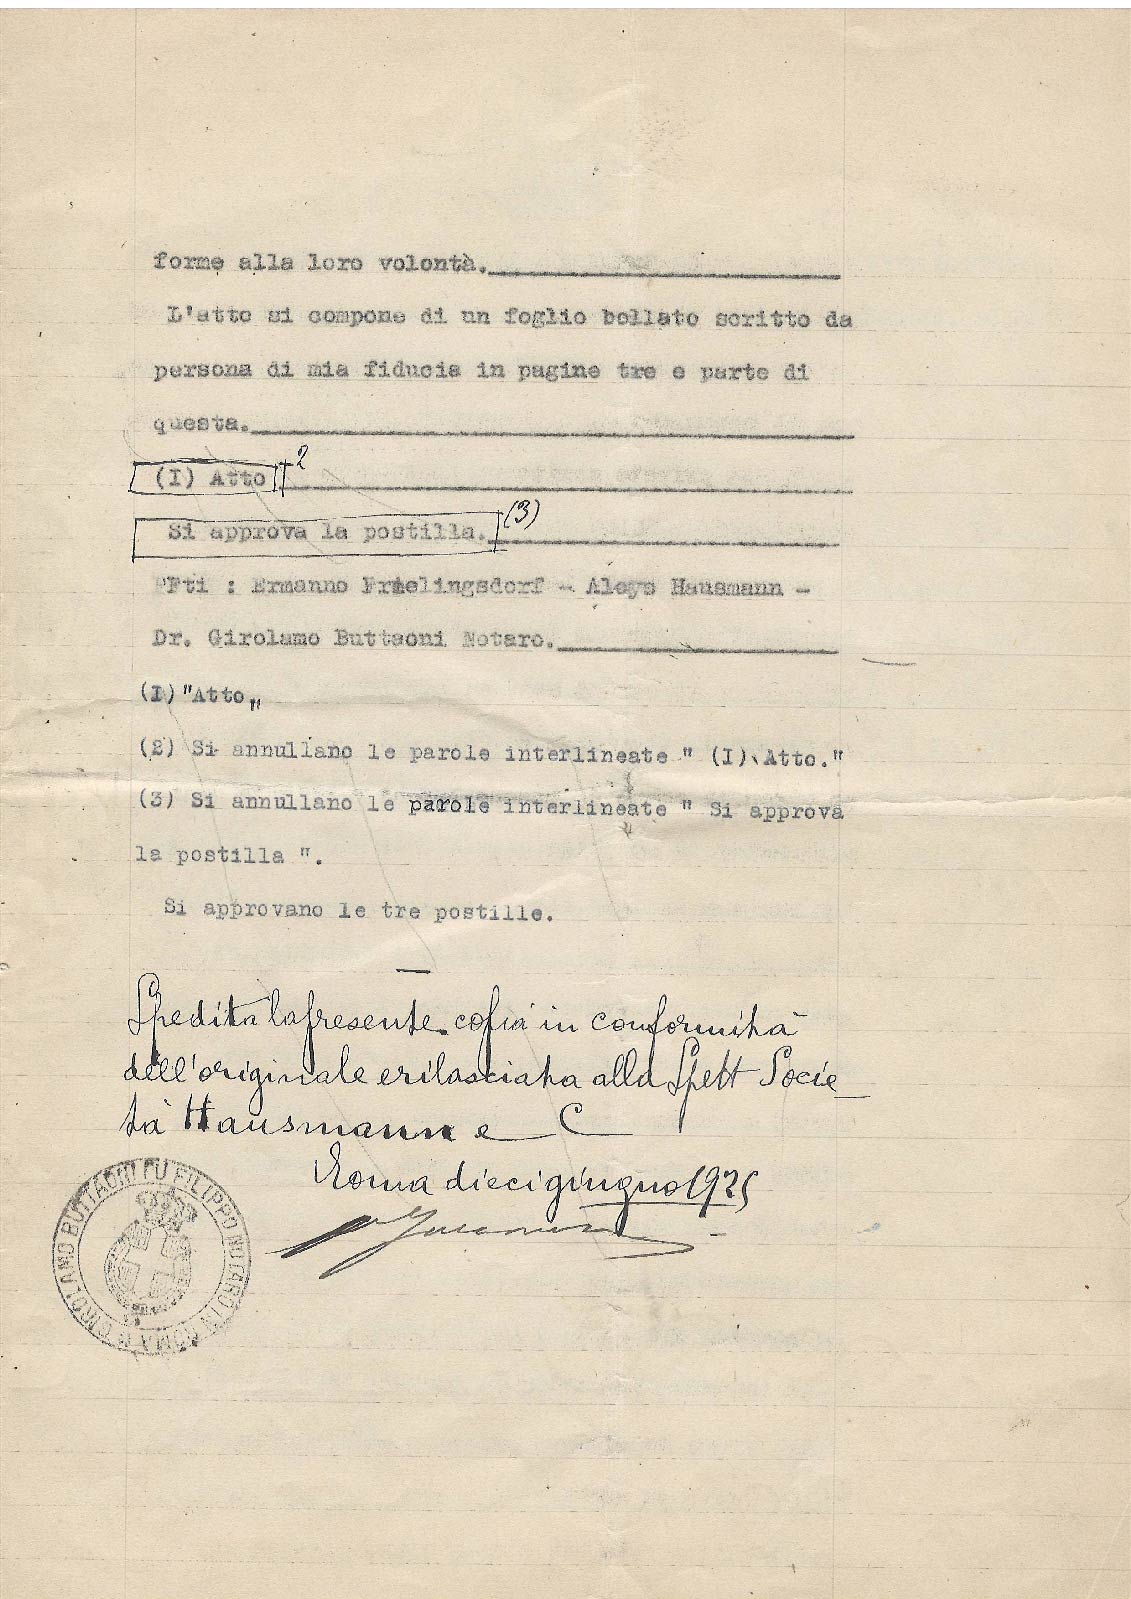 forme alla loro volontà.
L'atto si compone di un foglio bollato scritto da
persona di mia fiducia in pagine tre e parte di
questa.
(I) Atto 2
Si approva la postilla. (3)
FFti : Ermanno Frielingsdorf - Aloys Hausmann -
Dr. Girolamo Buttaoni Notaro.
(I) "Atto„
(2) Si annullano le parole interlineate " (I) Atto."
(3) Si annullano le parole interlineate " Si approva
la postilla ".
Si approvano le tre postille.
Spedita la presente copia in conformità
dell'originale e rilasciata alla Spett Socie
tà Hausmann e C
Roma dieci giugno 1925
GIROLAMO BUTTAONI FU FILIPPO NOTARO IN ROMA